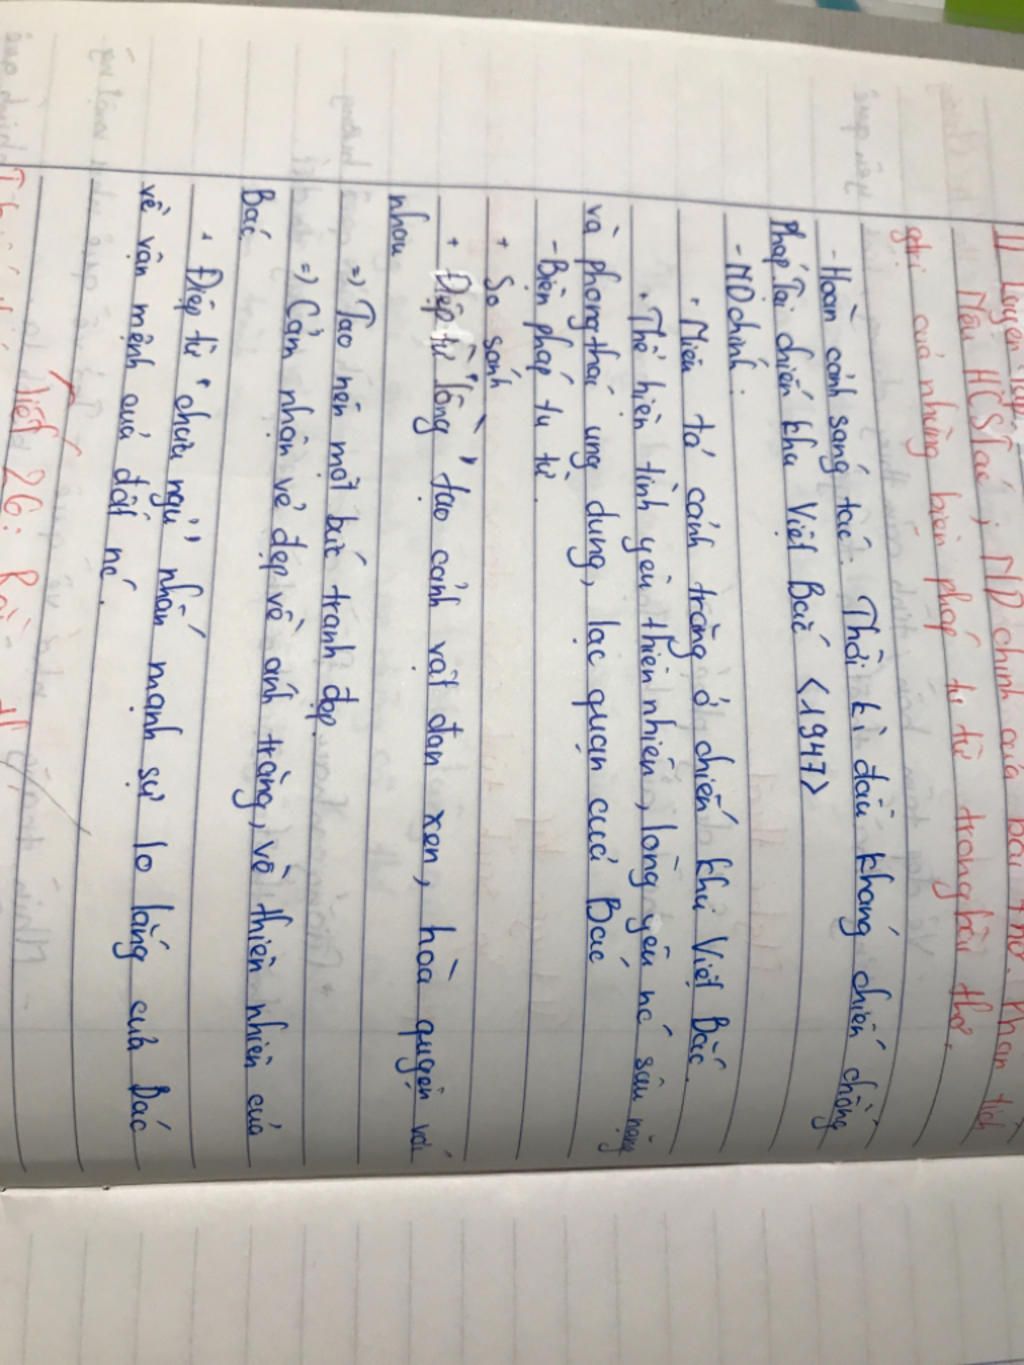 II Luyện tập.
Nêu HCSTác; ND chính của bài thơ. Phân tích
giá trị những biện pháp tu từ trong bài thơ.
- Hoàn cảnh sáng tác: Thời kì đầu kháng chiến chống
Pháp Tại chiến khu Việt Bắc <1947>
- ND chính:
• Miêu tả cảnh trăng ở chiến khu Việt Bắc.
• Thể hiện tình yêu thiên nhiên, lòng yêu nc sâu nặng
và phong thái ung dung, lạc quan của Bác
- Biện pháp tu từ.
+ So sánh
+ Điệp từ "lồng" tạo cảnh vật đan xen, hòa quyện với
nhau
=> Tạo nên một bức tranh đẹp.
=> Cảm nhận vẻ đẹp về ánh trăng, về thiên nhiên của
Bác
• Điệp từ "chưa ngủ" nhấn mạnh sự lo lắng của Bác
về vận mệnh của đất nc.
Tiết 26: